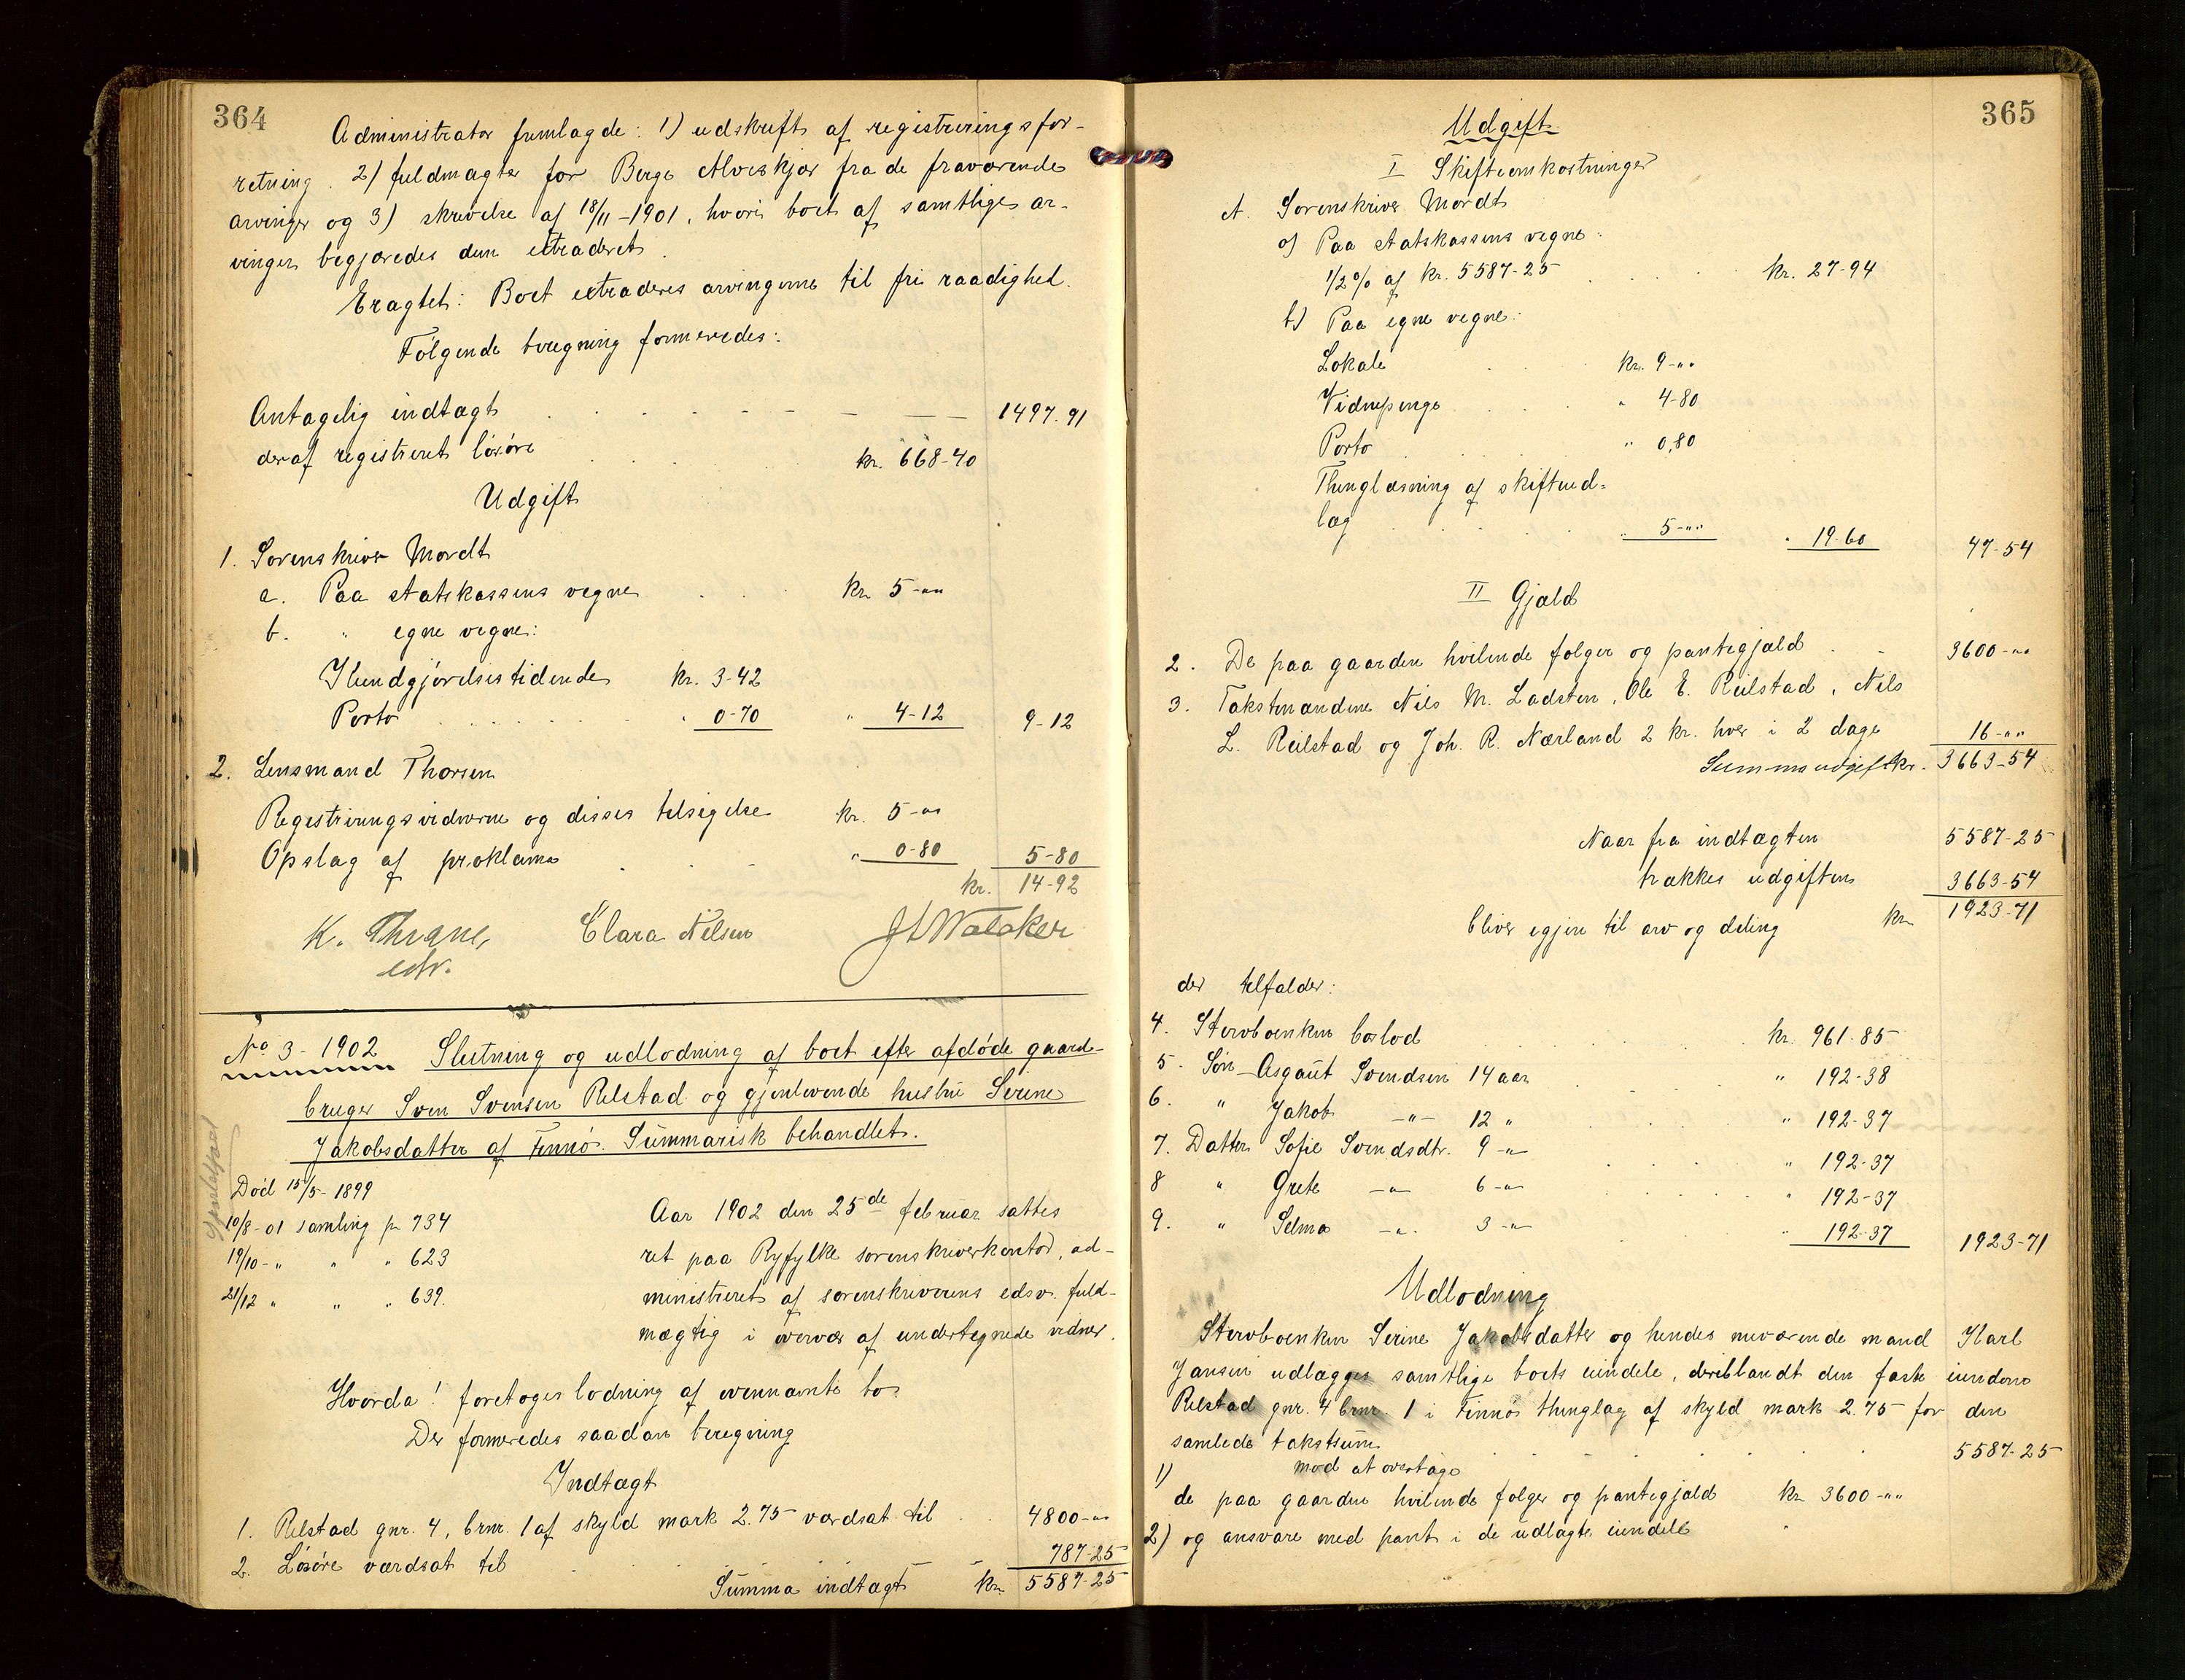 364
Administrator fremlagde: 1) udskrift af registreringsfor-
retning. 2) fuldmagter for Berge Alveskjær fra de fraværende
arvinger og 3) skrivelse af 18/11-1901, hvori boet af samtlige ar-
vinger begjæredes dem extraderet.
Eragtet: Boet extraderes arvingerne til fri raadighed.
Følgende beregning formeredes:
Antagelig indtægt 1497-91
deraf registreret løsøre kr. 668-40
Udgift
1. Sorenskriver Mordt
a. Paa statskassens vegne kr. 5-""
b. " egne vegne:
Kundgjørelsestidende kr. 3-42
Porto " 0-70 " 4-12 9-12
2. Lensmand Thorsen
Registreringsvidnerne og disses tilsigelse kr. 5-""
Opslag af proklama " 0-80 5-80
kr. 14-92
K. Thrane, edv. Clara Nilsen
No 3-1902 Slutning og udlodning af boet efter afdøde gaard-
bruger Sven Svensen Relstad og gjenlevende hustru Serine
Jakobsdatter af Finnø. Summarisk behandlet.
Død 15/5-1899
10/8-01 samling p. 734
19/10-" " " 623
21/12 " " " 639.
Aar 1902 den 25de februar sattes
ret paa Ryfylke sorenskriverkontor, ad-
ministreret af sorenskriverens edsv. fuld-
mægtig i overvær af undertegnede vidner.
Hvorda! foretoges lodning af ovennævnte bo.
Der formeredes saadan beregning
Indtægt
1. Relstad gnr. 4, brnr. 1 af skyld mark 2.75 værdsat til 4800-""
2. Løsøre værdsat til 787-25
Summa indtægt kr. 5587-25
365
Udgift
I Skifteomkostninger
A. Sorenskriver Mordt
a) Paa statskassens vegne:
1/2% af kr. 5587-25 kr. 27-94
b) Paa egne vegne:
Lokale kr. 9-""
Vidnepenge " 4-80
Porto " 0,80
Thinglæsning af skifteud-
læg " 5-"" " 19-60 47-54
II Gjæld
2. De paa gaarden hvilende følger og pantegjæld 3600-""
3. Takstmændene Nils M. Ladsten, Ole E. Reilstad, Nils
L. Reilstad og Joh. R. Nærland 2 kr. hver i 2 dage 16-""
Summa udgift kr. 3663-54
Naar fra indtægten 5587-25
trækkes udgiften 3663-54
bliver igjen til arv og deling kr. 1923-71
der tilfalder:
4. Stervboenken boslod kr. 961-85
5. Søn Asgaut Svendsen 14 aar " 192-38
6. " Jakob -"- 12 " " 192-37
7. Datter Sofie Svendsdtr. 9 -"- " 192-37
8 " Grete -"- 6 -"- " 192-37
9. " Selma -"- 3 -"- " 192-37 1923-71
Udlodning
Stervboenken Serine Jakobsdatter og hendes nuværende mand Karl
Jansen udlægges samtlige boets eiendele, deriblandt den faste eiendom
Relstad gnr. 4 brnr. 1 i Finnø thinglag af skyld mark 2.75 for den
samlede takstsum 5587-25
mod at overtage
1) de paa gaarden hvilende følger og pantegjæld kr. 3600-""
2) og ansvare med pant i de udlagte eiendele